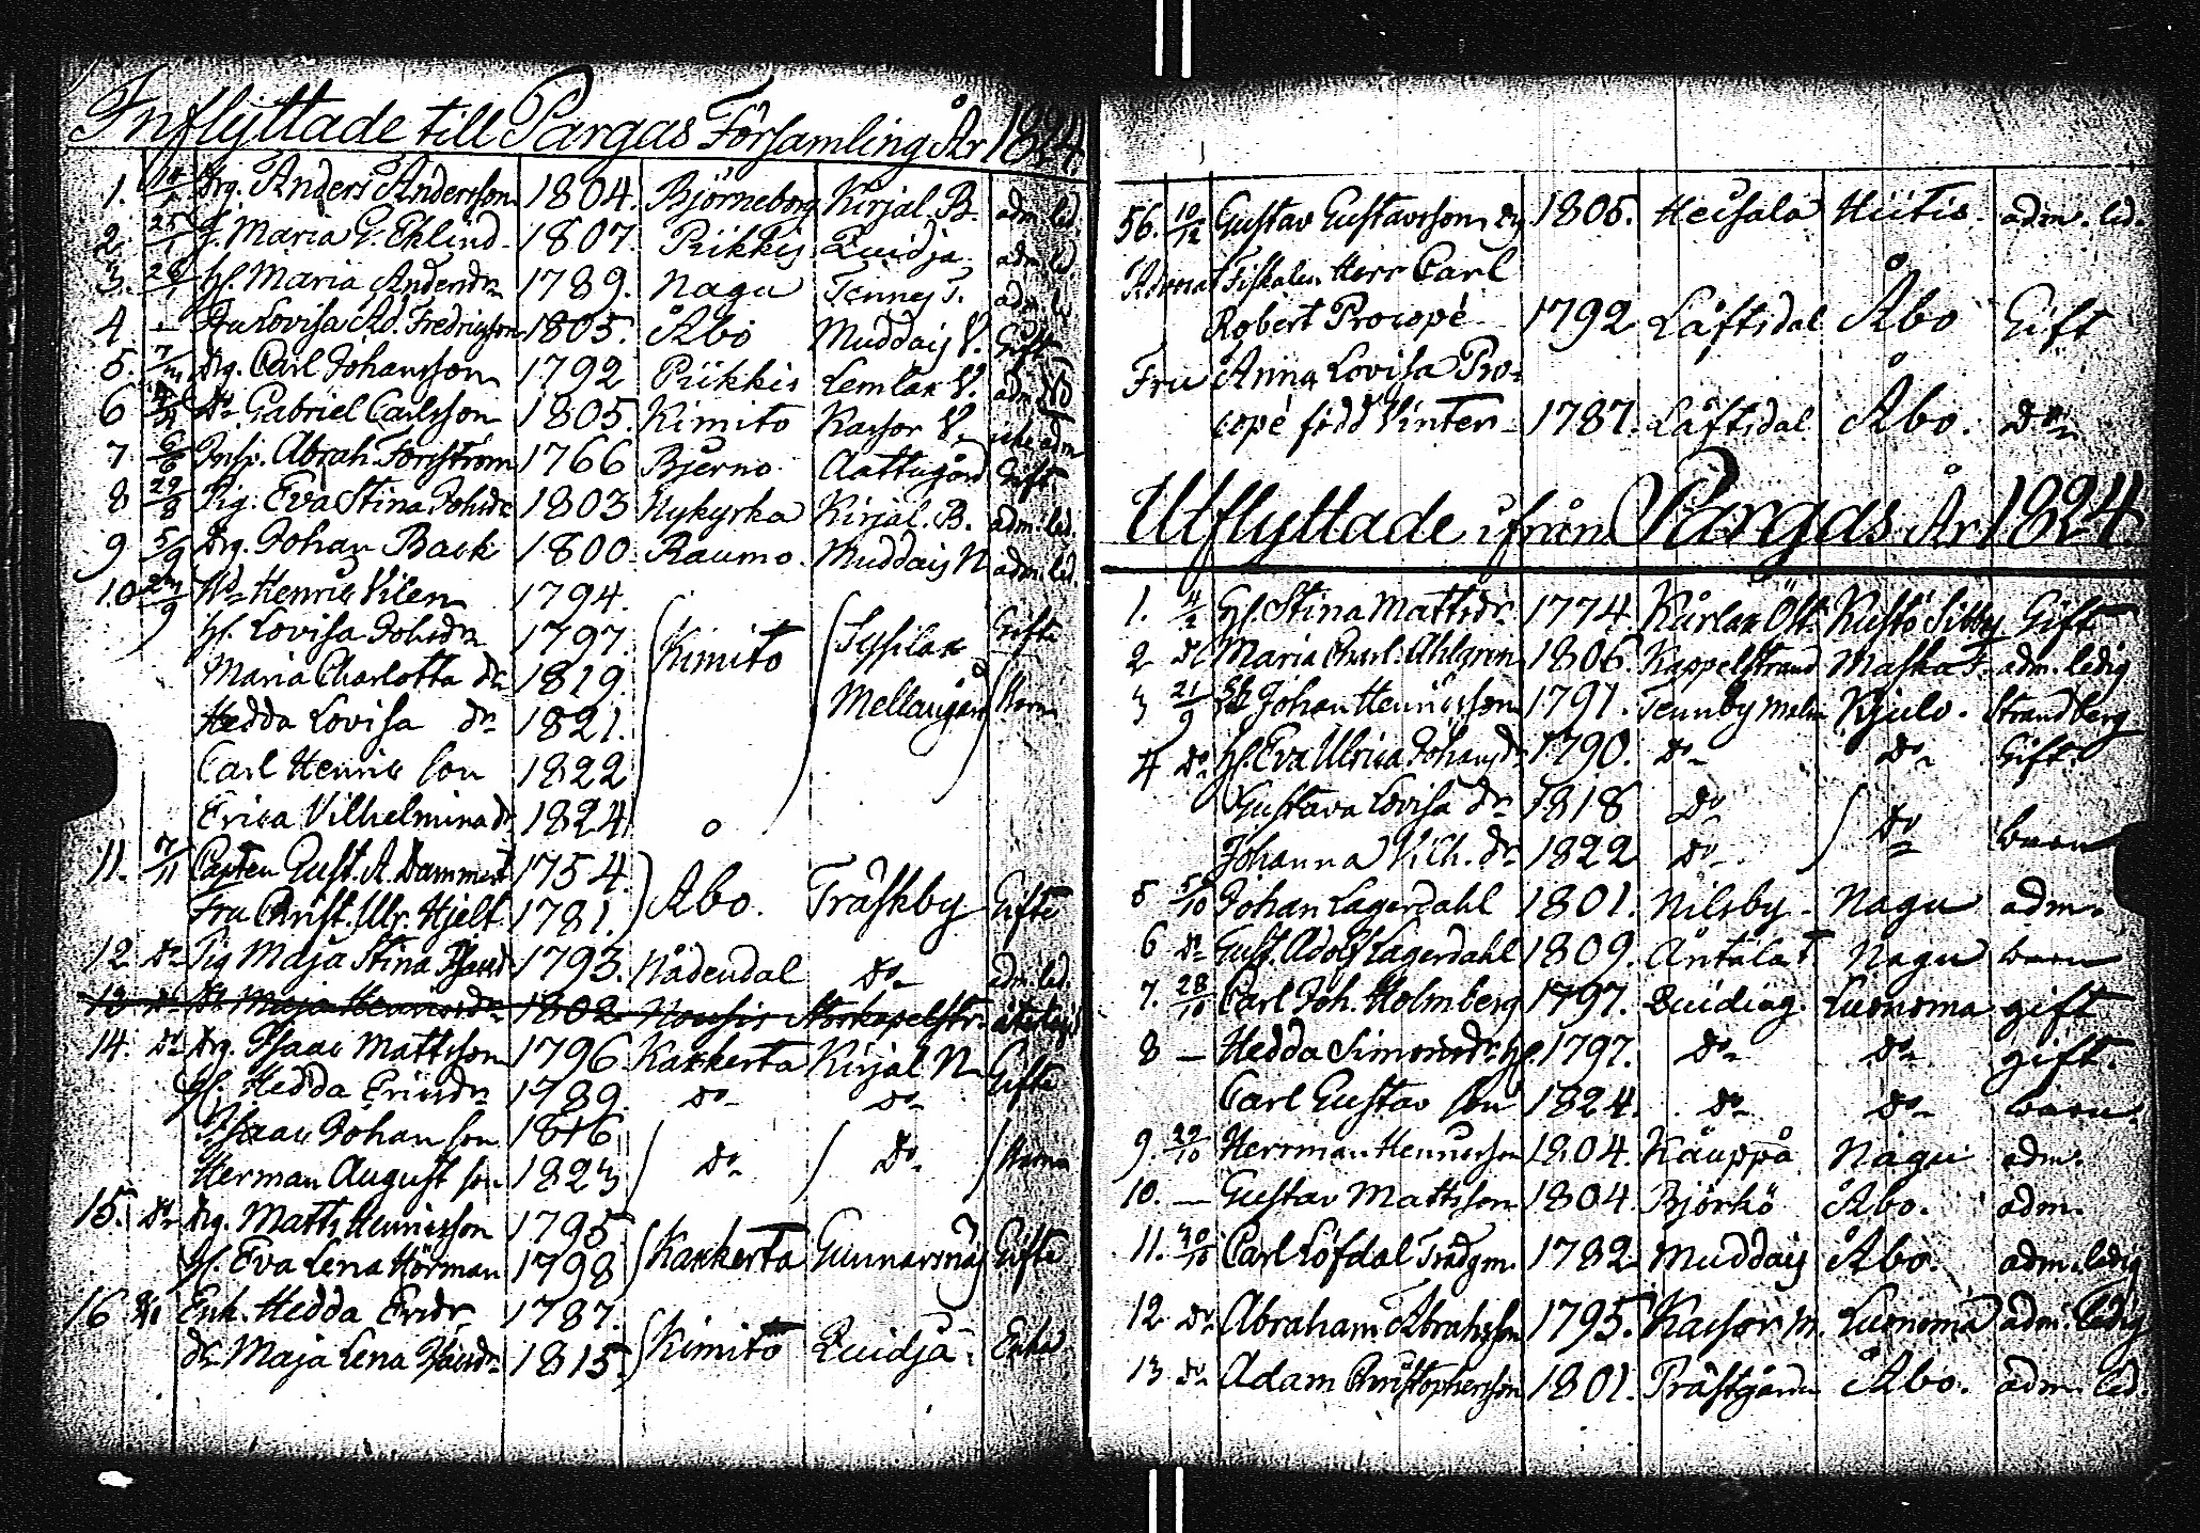 Inflyttade till Pargas Församling År 1824
1. Drg. Anders Andersson 1804. Björneborg Kirjal. B. adm. led.
2. 25/1 J. Maria G. Eklind 1807. Piikkis Quidja adm. led.
3. Hu. Maria Andersdr 1789. Nagu Tenney T.
4 – Fru Lovisa Ad. Fredricsson 1805. Åbo Muddais V. Gift
5. Drg. Carl Johansson 1792 Piikkis Lemlax V.
6 Do Gabriel Carlsson 1805. Kimito Kassor V. icke adm
7 Insp. Abrah. Forsström 1766 Bjerno Aattugård Gift
8 29/8 Pig. Eva Stina Johsdr 1803 Nykyrka Kirjal. B. adm. led.
9 5/9 Drg. Johan Back 1800. Raumo. Muddais N adm. led.
10 Do Henric Vilen 1794.
Hu. Lovisa Johsdr 1797. Kimito Sysilax Gifte
Maria Charlotta dr 1819.
Hedda Lovisa dr 1821. Mellangård Barn
Carl Henric son 1822
Erica Vilhelmina dr 1824
11. Capten Gust. A. Dammert 1754.
Fru Christ. Ulr. Hjelt 1781. Åbo. Träskby Gifte
12 Do Pig Maja Stina 1793. Nådendal Do adm. led.
13 Do Do Maja Henricsdr 1802 Nousis Norkapelstr.
14. Do Drg. Isaac Mattsson 1796 Kakkerta Kirjal N Gifte
Hu. Hedda Ericsdr 1789. Do Do
Isaac Johan son 1816
Herman August son 1823 Do Do Barn
15. Do Drg. Matts Henricsson 1795.
Hu. Eva Lena Hörman 1798 Kakkerta Gunnarsnäs Gifte
16 Do Enk. Hedda Ericsdr 1787.
dr Maja Lena 1815. Kimito Quidja Enka
56. 10/12 Gustav Gustavsson 1805. Heisala Hiitis adm. led.
Advocat Fiskalen Herr Carl
Robert Procopé 1792 Låftsdal Åbo Gift
Fru Anna Lovisa Pro-
copé född Vinter 1787. Låftsdal Åbo. Do
Utflyttade ifrån Pargas År 1824
1. 4/2 Hu. Stina Mattsdr 1774. Kårlax Öst. Kustö Sitby Gift
2 Do Maria Charl. Ahlgren 1806. Kappelstrand Masku adm. ledig
3 21/9 Johan Henricsson 1791. Tennby Malm Kjulo. Strandberg
4 Do Hu. Eva Ulrica Johansdr 1790. Do Do Gift.
Gustava Lovisa dr 1818 Do
Johanna Vilh. dr 1822 Do Do barn
5 5/10 Johan Lagerdahl 1801. Nilsby Nagu adm.
6 Do Gust. Adolf Lagerdahl 1809. Antala T Nagu barn
7. 28/10 Carl Joh. Holmberg 1797. Quidiag. Luonoma gift
8 – Hedda Simonsdr Hu. 1797. Do Do gift.
Carl Gustav son 1824. Do Do barn
9. 29/10 Herrman Henricsson 1804. Kauppa Nagu adm.
10. – Gustav Mattsson 1804. Björkö Åbo. adm.
11. 30/10 Carl Löfdal Trädgm. 1782 Muddais Åbo. adm. ledig
12 Do Abraham Abrahsson 1795. Kassor M. Luonoma adm. ledig
13 Do Adam Christophersson 1801. Prästgården Åbo. adm. led.